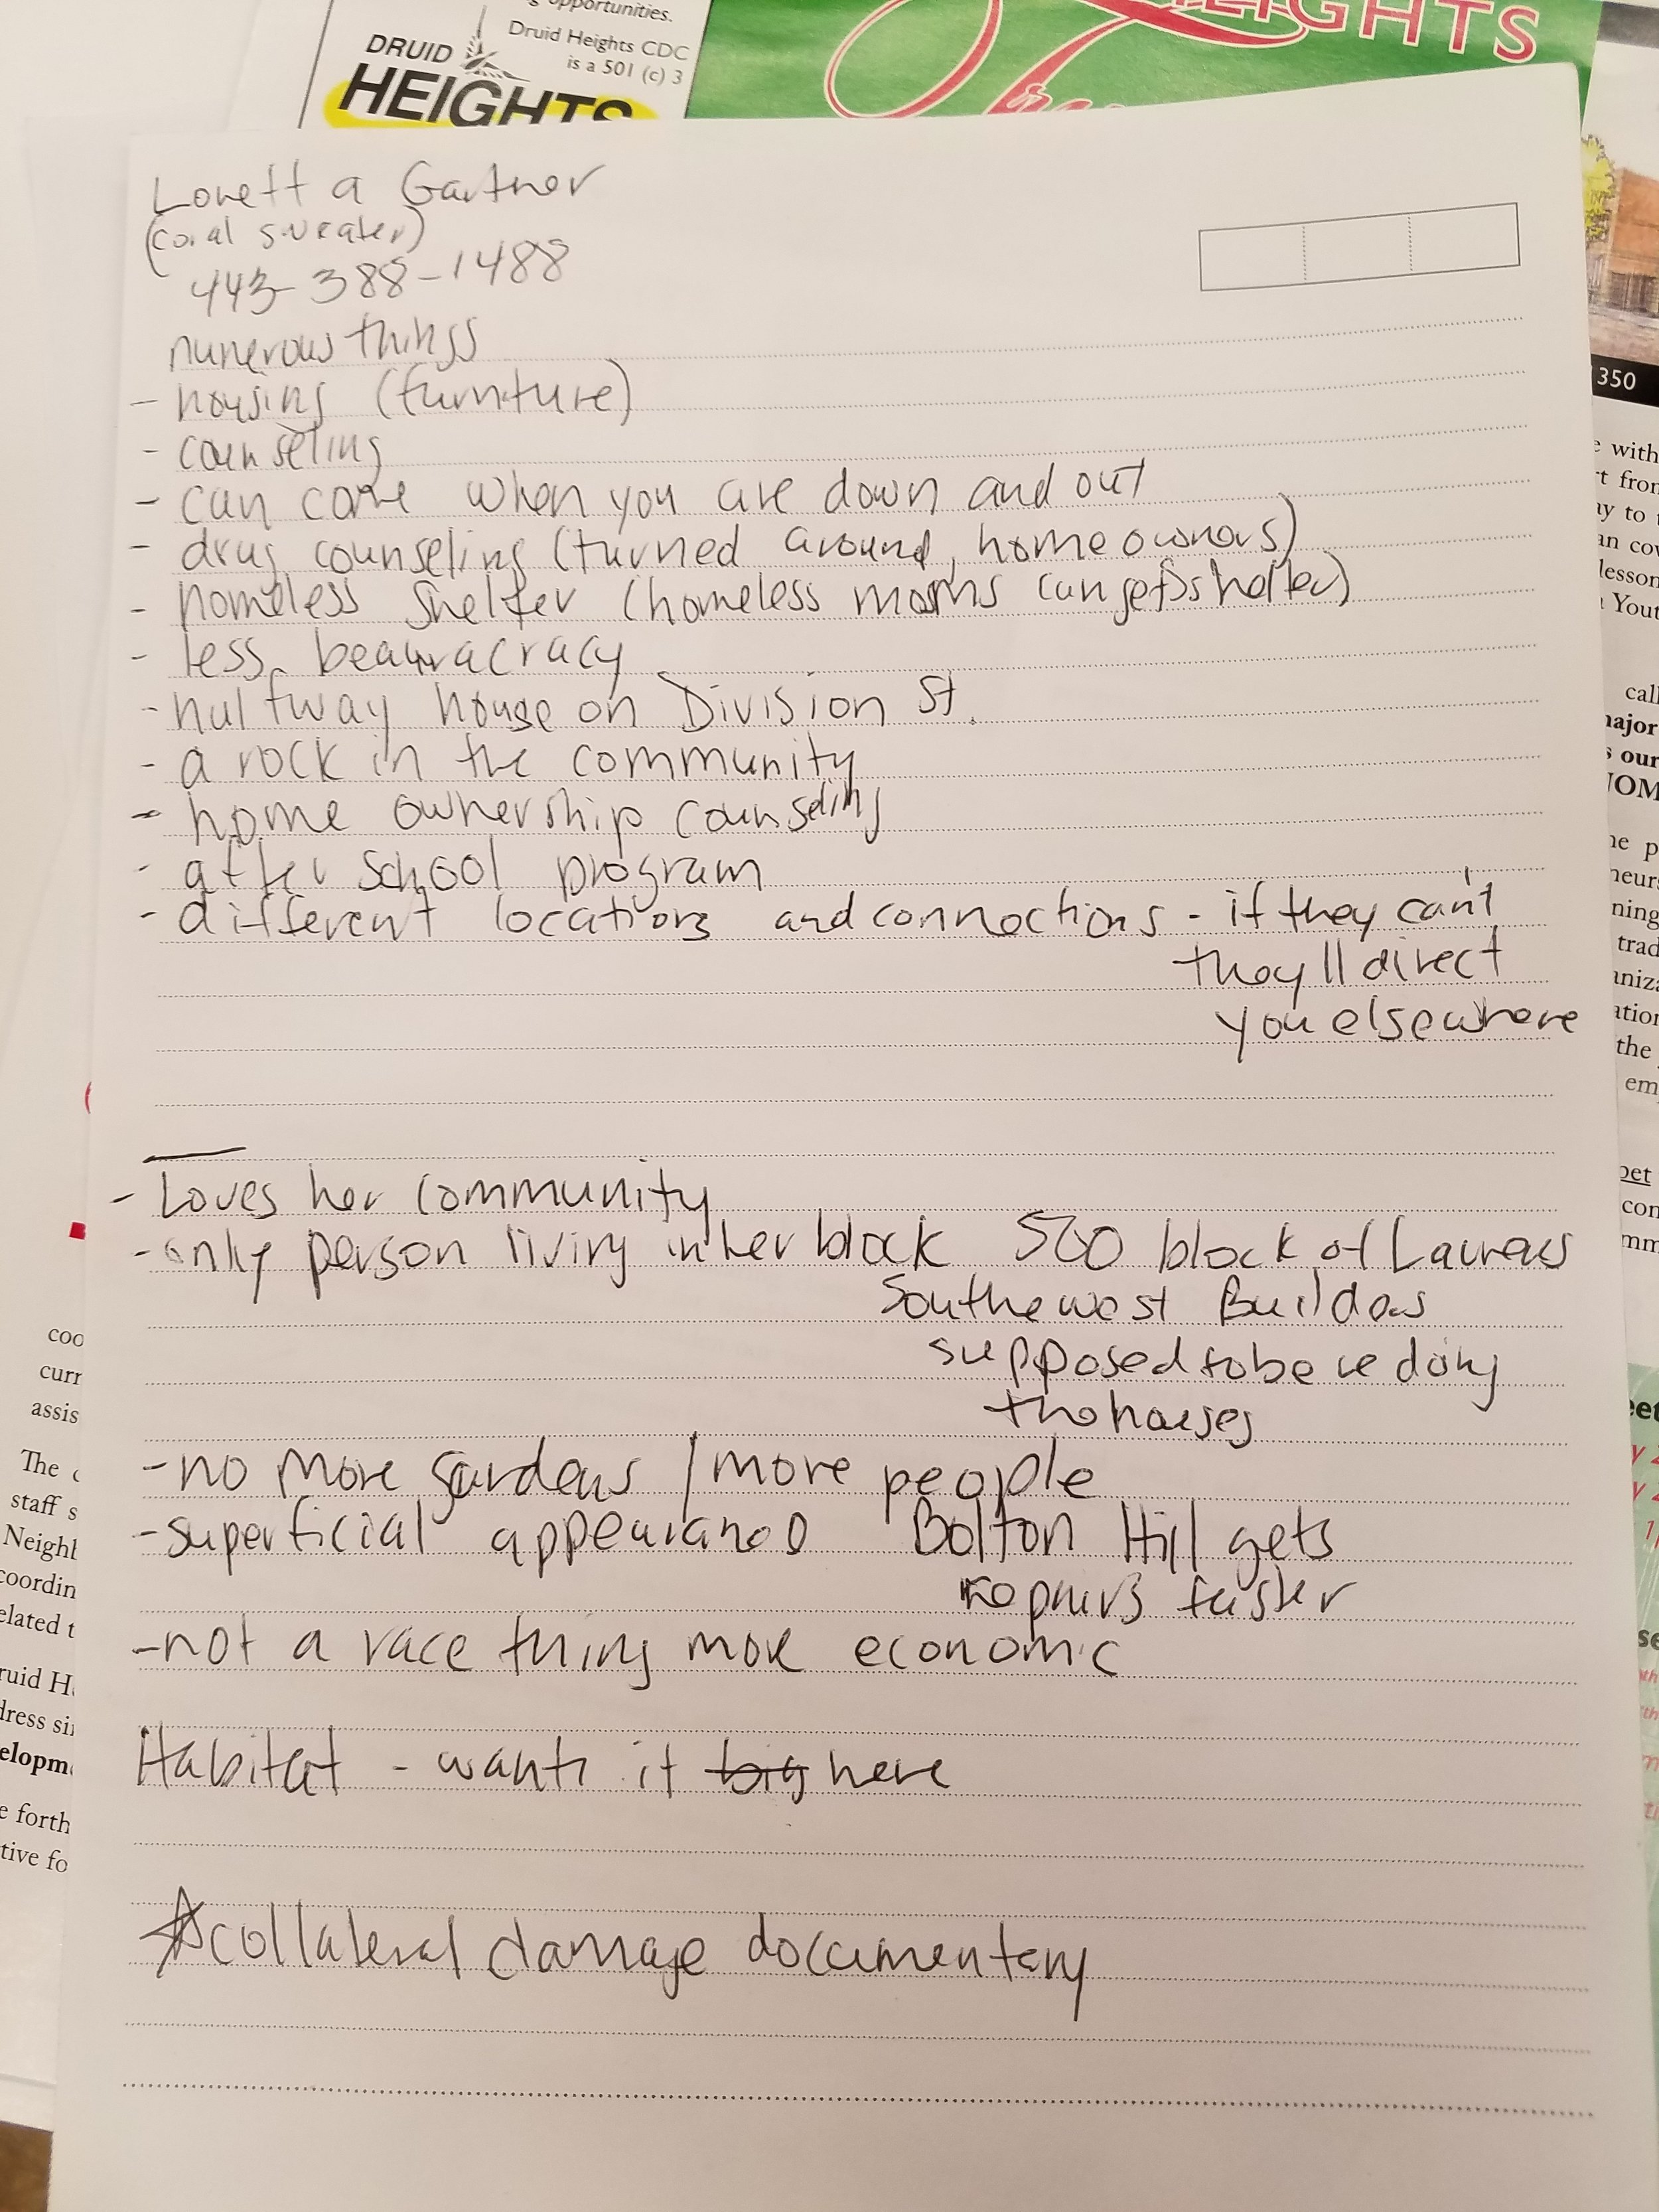 opportunities.
Druid Heights CDC
is a 501 (c) 3
DRUID
HEIGHTS
HEIGHTS
350
Lovett a Gartner
(coral sweater)
443-388-1488
numerous things
- housing (furniture)
- counseling
- can come when you are down and out
- drug counseling (turned around, homeowners)
- homeless shelter (homeless moms can get shelter)
- less beauracracy
- halfway house on Division St.
- a rock in the community
- home ownership counseling
- after school program
- different locations and connections - if they can't
they'll direct
you elsewhere
- Loves her community
- only person living in her block 500 block of Laurens
Southewest Builders
supposed to be redoing
the houses
- no more gardens / more people
- superficial appearance Bolton Hill gets
repairs faster
- not a race thing more economic
Habitat - wants it big here
☆ collateral damage documentary
with
lesson
call
major
our
the
coo
curr
assis
The
staff s
Neighb
coordin
elated t
ruid H
dress si
elopm
e forth
tive fo